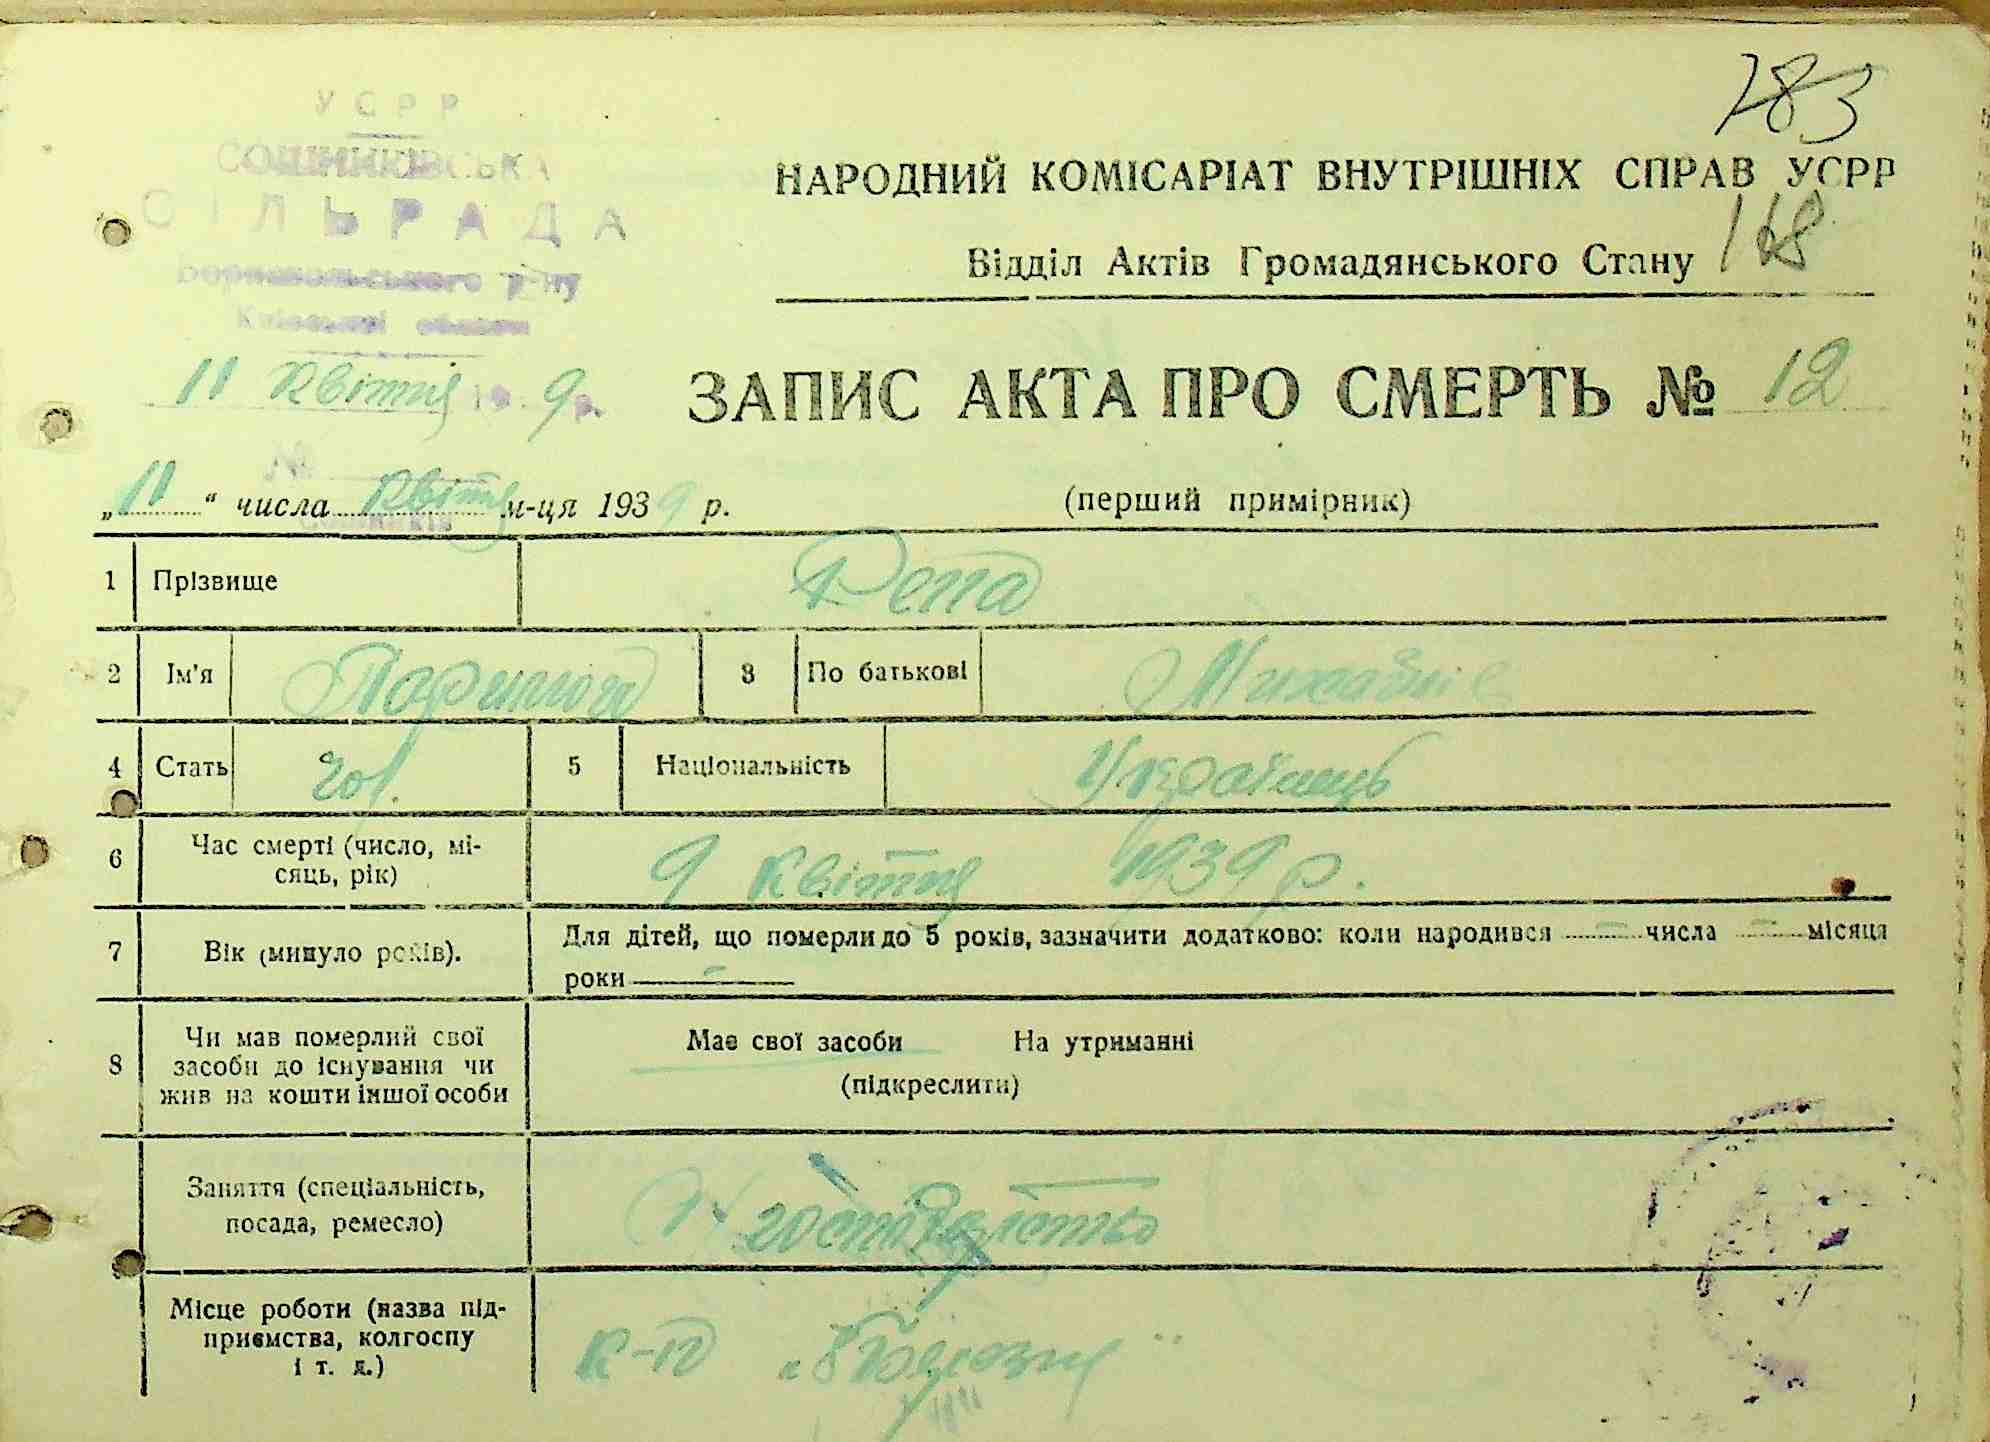 283
УСРР
СОШНИКІВСЬКА
СІЛЬРАДА
Бориспольського р-ну
Київської області
НАРОДНИЙ КОМІСАРІАТ ВНУТРІШНІХ СПРАВ УСРР
Відділ Актів Громадянського Стану 168
11 Квітня 19 9 р.
ЗАПИС АКТА ПРО СМЕРТЬ № 12
№
„ 11 “ числа Квітня м-ця 1939 р. (перший примірник)
1 Прізвище Репа
2 Ім'я 3 По батькові
4 Стать чол. 5 Національність Українець
6 Час смерті (число, мі-
сяць, рік) 9 Квітня 1939 р.
7 Вік (минуло років). Для дітей, що померли до 5 років, зазначити додатково: коли народився — числа — місяця
роки —
8 Чи мав померлий свої
засоби до існування чи
жив на кошти іншої особи
Має свої засоби На утриманні
(підкреслити)
Заняття (спеціальність,
посада, ремесло)
Місце роботи (назва під-
приємства, колгоспу
і т. д.)
к-п „8 Березня"